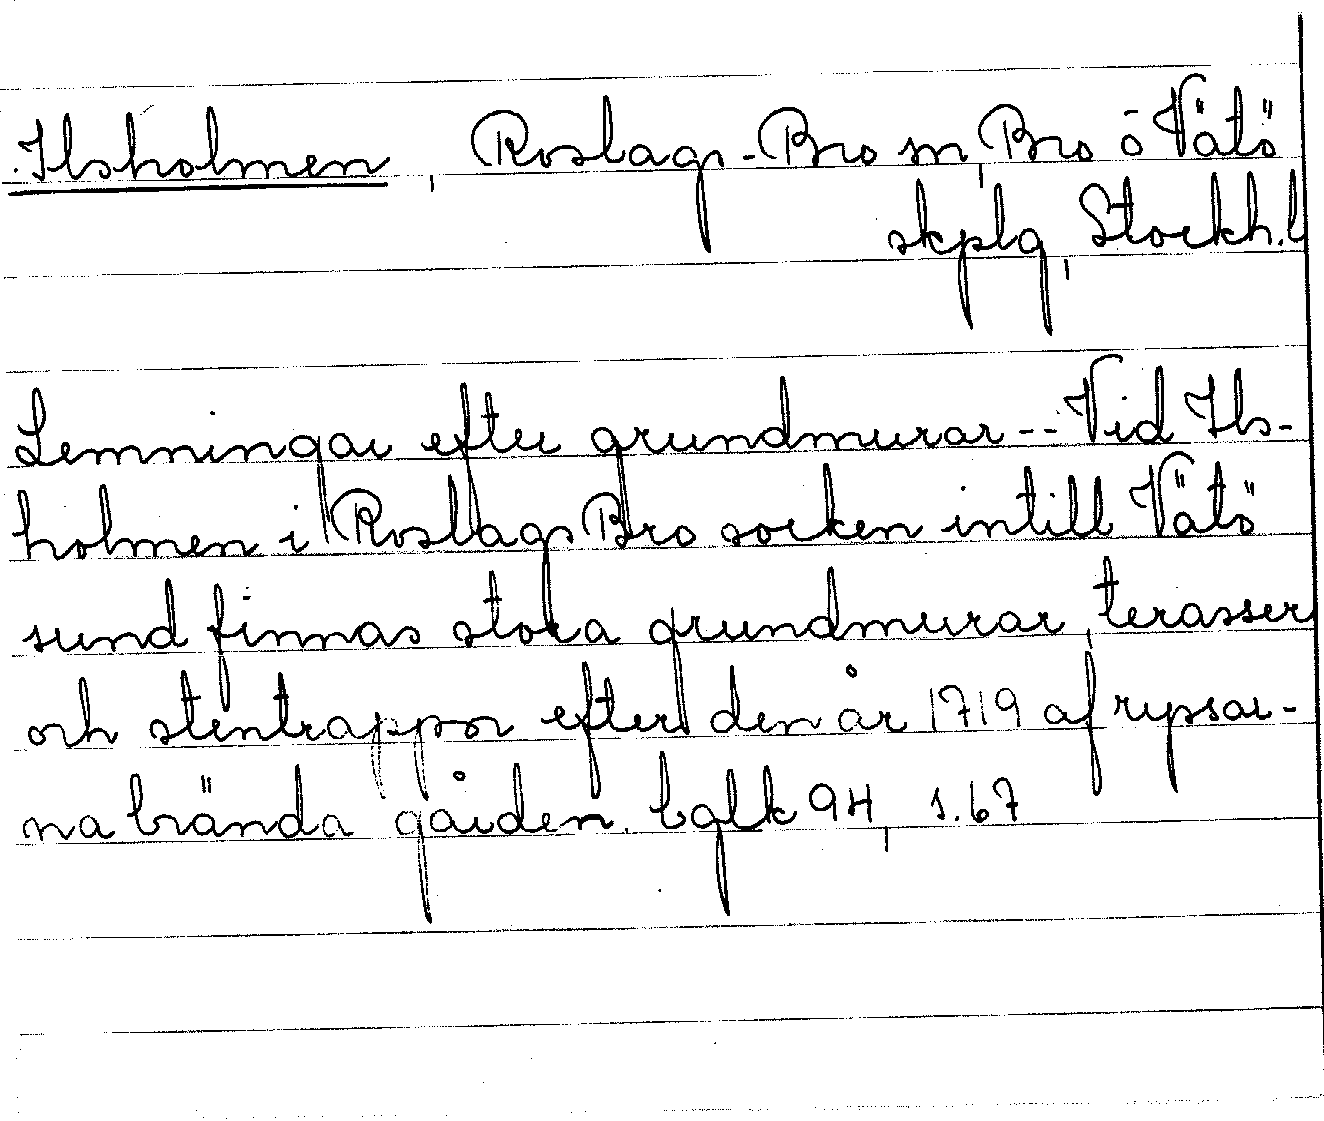 Ilsholmen, Roslags-Bro sn, Bro o Vätö
skplg, Stockh.l
Lemningar efter grundmurar -- Vid Ils-
holmen i Roslags Bro socken intill Vätö
sund finnas stora grundmurar, terasser
och stentrappor efter den år 1719 af ryssar-
na brända gården. bglk 94, s. 67